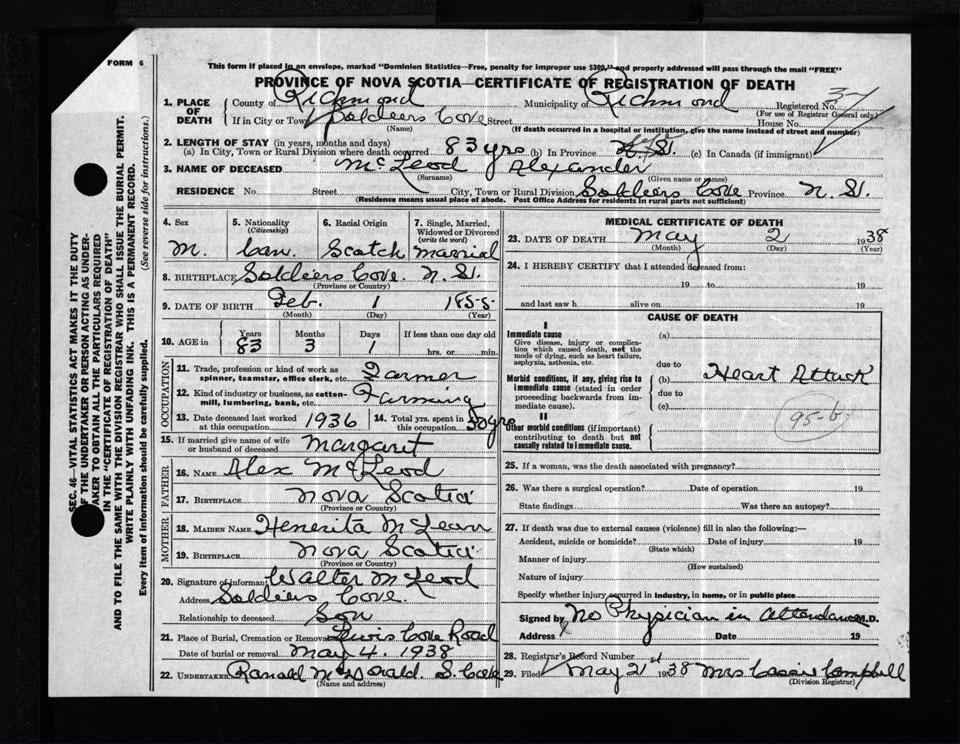 FORM 6
This form if placed in an envelope, marked "Dominion Statistics—Free, penalty for improper use $300," and properly addressed will pass through the mail "FREE"
PROVINCE OF NOVA SCOTIA—CERTIFICATE OF REGISTRATION OF DEATH
1. PLACE OF DEATH
County of Richmond Municipality of Richmond Registered No. 37
(For use of Registrar General only)
If in City or Town Soldiers Cove Street House No.
(Name) (If death occurred in a hospital or institution, give the name instead of street and number)
2. LENGTH OF STAY (in years, months and days)
(a) In City, Town or Rural Division where death occurred 83 yrs (b) In Province (c) In Canada (if immigrant)
3. NAME OF DECEASED McLeod Alexander
(Surname) (Given name or names)
RESIDENCE No. Street City, Town or Rural Division Soldiers Cove Province N. S.
(Residence means usual place of abode. Post Office Address for residents in rural parts not sufficient)
4. Sex
M.
5. Nationality
(Citizenship)
Can.
6. Racial Origin
Scotch
7. Single, Married, Widowed or Divorced
(write the word)
Married
8. BIRTHPLACE Soldiers Cove. N. S.
(Province or Country)
9. DATE OF BIRTH Feb. 1 1855
(Month) (Day) (Year)
10. AGE in
Years Months Days If less than one day old
83 3 1 hrs. or min.
OCCUPATION
11. Trade, profession or kind of work as
spinner, teamster, office clerk, etc. Farmer
12. Kind of industry or business, as cotton-
mill, lumbering, bank, etc. Farming
13. Date deceased last worked
at this occupation 1936
14. Total yrs. spent in
this occupation 50 yrs
15. If married give name of wife
or husband of deceased Margaret
FATHER
16. NAME Alex McLeod
17. BIRTHPLACE Nova Scotia
(Province or Country)
MOTHER
18. MAIDEN NAME Henerita McLean
19. BIRTHPLACE Nova Scotia
(Province or Country)
20. Signature of informant Walter McLeod
Address Soldiers Cove.
Relationship to deceased Son
21. Place of Burial, Cremation or Removal Lewis Cove Road
Date of burial or removal May 4. 1938
22. UNDERTAKER Ranald McDonald. S. Cove
(Name and address)
MEDICAL CERTIFICATE OF DEATH
23. DATE OF DEATH May 2 1938
(Month) (Day) (Year)
24. I HEREBY CERTIFY that I attended deceased from:
19 to 19
and last saw h alive on 19
CAUSE OF DEATH
I
Immediate cause (a)
Give disease, injury or complica-
tion which caused death, not the
mode of dying, such as heart failure,
asphyxia, asthenia, etc.
due to
Morbid conditions, if any, giving rise to
immediate cause (stated in order
proceeding backwards from im-
mediate cause).
(b) Heart Attack
due to
(c)
95-b
II
Other morbid conditions (if important)
contributing to death but not
causally related to immediate cause.
25. If a woman, was the death associated with pregnancy?
26. Was there a surgical operation? Date of operation 19
State findings Was there an autopsy?
27. If death was due to external causes (violence) fill in also the following:—
Accident, suicide or homicide? Date of injury 19
(State which)
Manner of injury
(How sustained)
Nature of injury
Specify whether injury occurred in industry, in home, or in public place
Signed by No Physician in attendance M.D.
Address Date 19
28. Registrar's Record Number
29. Filed May 21st 1938 Mrs Cassie Campbell
(Division Registrar)
SEC. 46—VITAL STATISTICS ACT MAKES IT THE DUTY
OF THE UNDERTAKER OR PERSON ACTING AS UNDER-
TAKER TO OBTAIN ALL THE PARTICULARS REQUIRED
IN THE "CERTIFICATE OF REGISTRATION OF DEATH"
AND TO FILE THE SAME WITH THE DIVISION REGISTRAR WHO SHALL ISSUE THE BURIAL PERMIT.
WRITE PLAINLY WITH UNFADING INK. THIS IS A PERMANENT RECORD.
Every item of information should be carefully supplied. (See reverse side for instructions.)